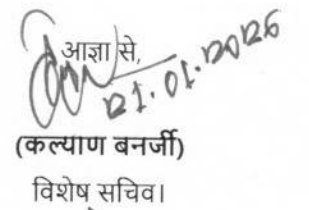 आज्ञा से,
21.01.2026
(कल्याण बनर्जी)
विशेष सचिव।